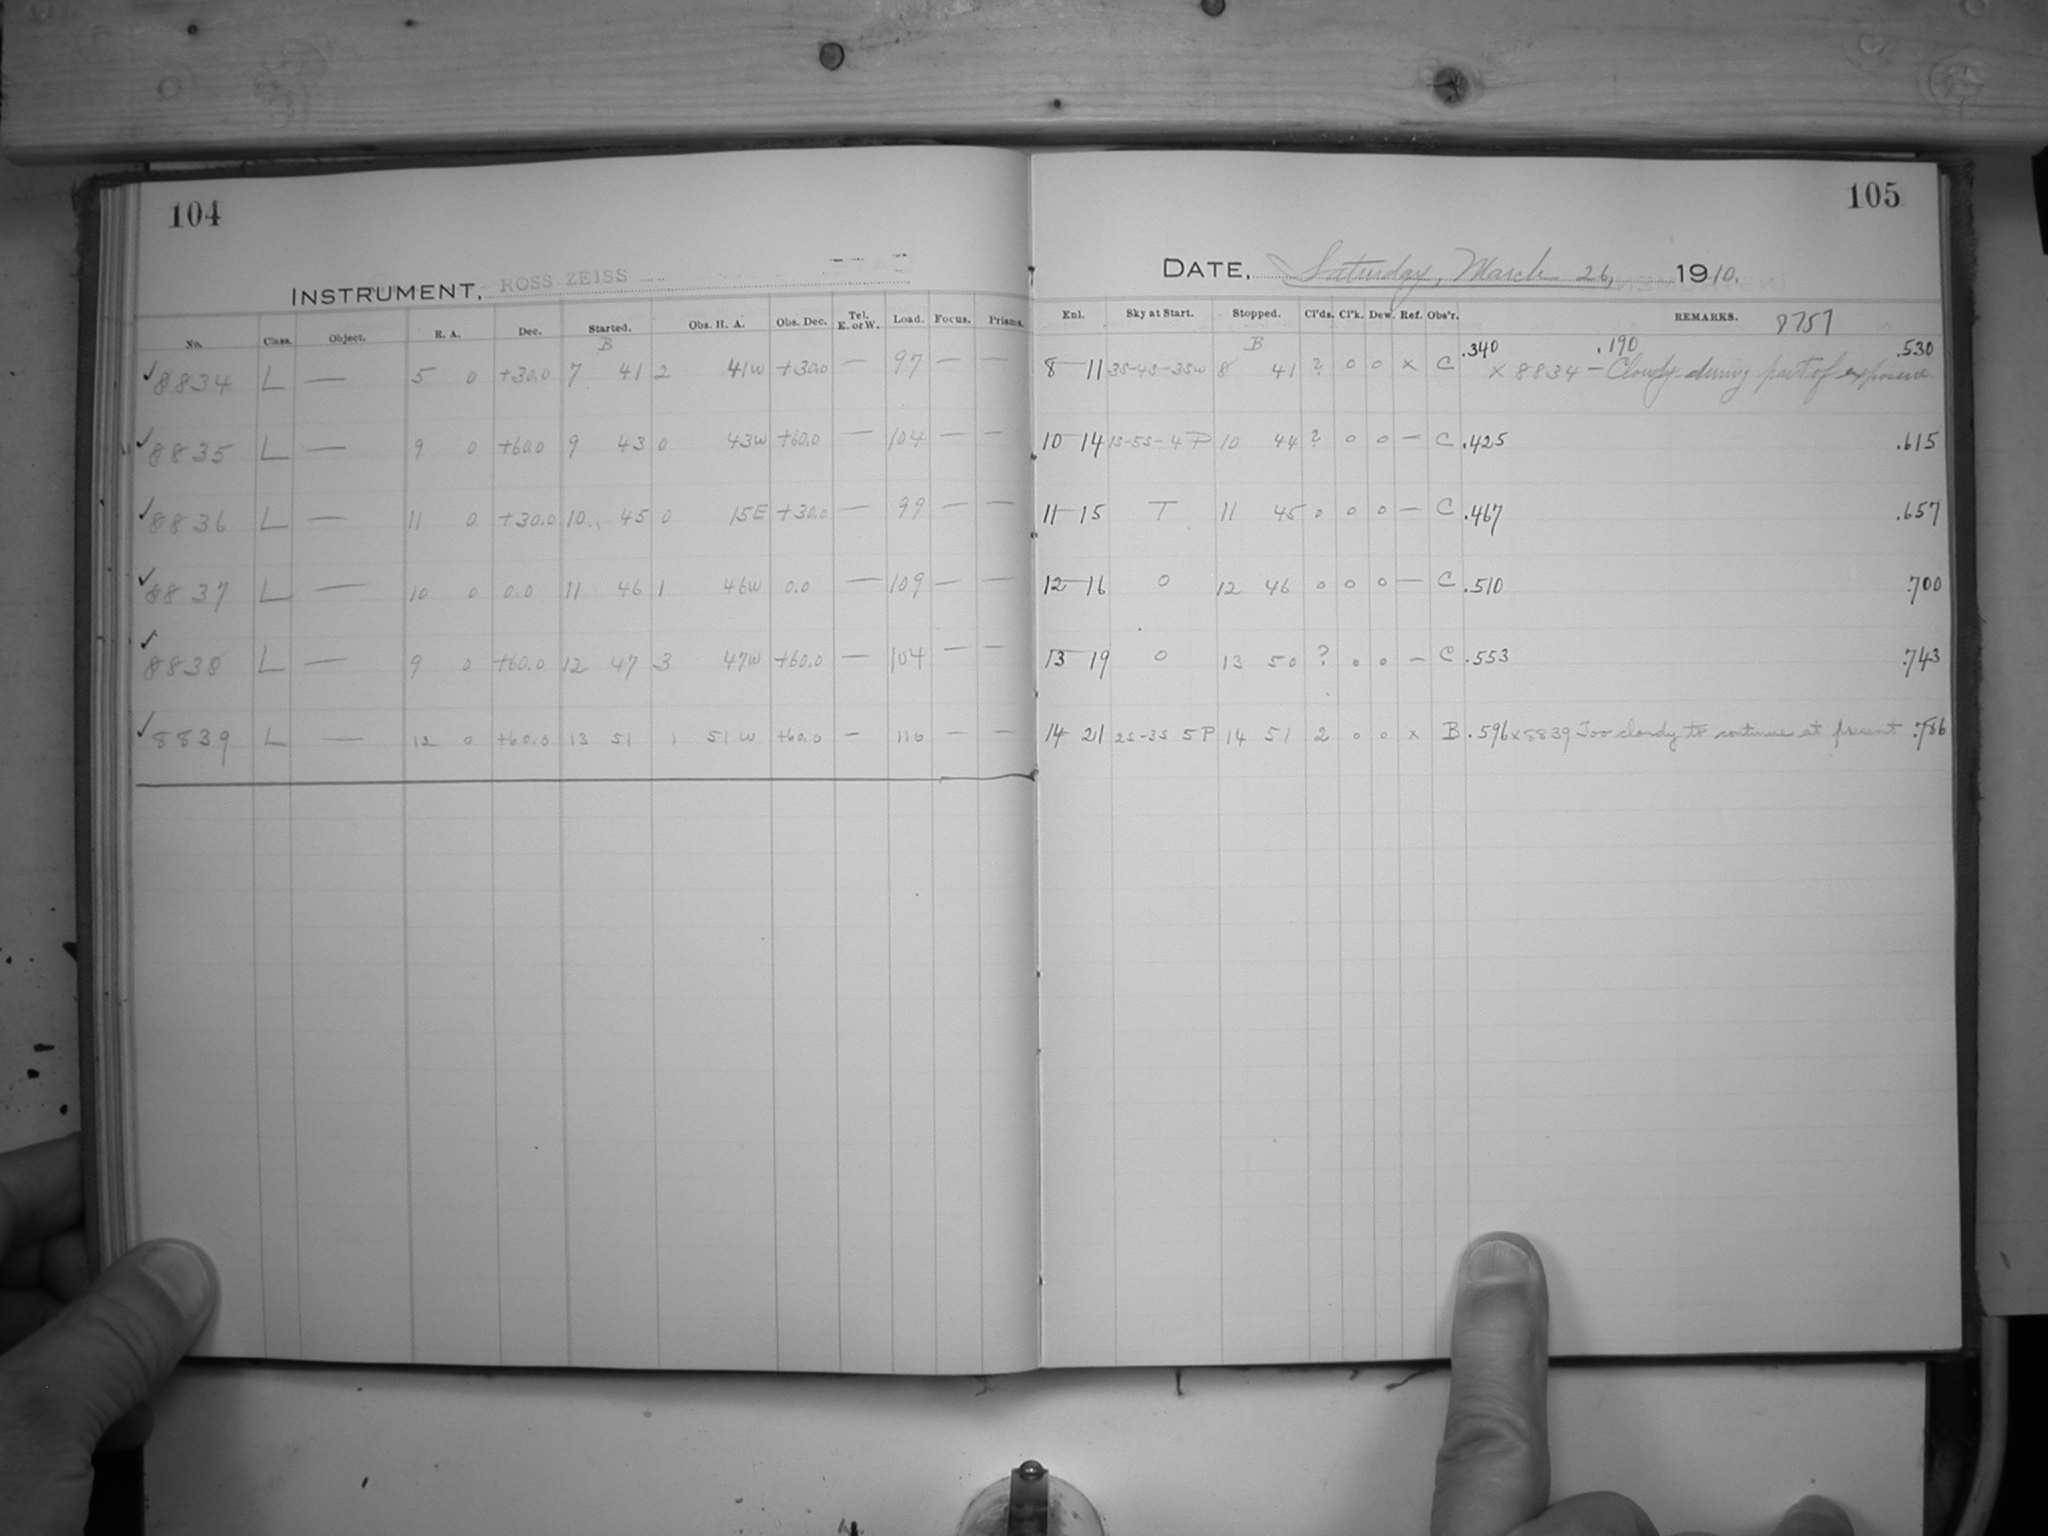 104
INSTRUMENT, ROSS ZEISS
No. Class. Object. R. A. Dec. Started. Obs. H. A. Obs. Dec. Tel. E. or W. Load. Focus. Prisms.
B
✓8834 L — 5 0 +30.0 7 41 2 41W +30.0 — 97 — —
✓8835 L — 9 0 +60.0 9 43 0 43W +60.0 — 104 — —
✓8836 L — 11 0 +30.0 10 45 0 15E +30.0 — 99 — —
✓8837 L — 10 0 0.0 11 46 1 46W 0.0 — 109 — —
✓8838 L — 9 0 +60.0 12 47 3 47W +60.0 — 104 — —
✓8839 L — 12 0 +60.0 13 51 1 51 W +60.0 — 110 — —
105
DATE, Saturday, March 26, 1910.
Enl. Sky at Start. Stopped. Cl'ds. Cl'k. Dew. Ref. Obs'r. REMARKS. 8757
B .340 .190 .530
8—11 3S-4S-3SW 8 41 ? 0 0 x C x 8834 — Cloudy during part of exposure
10—14 1S-5S-4P 10 44 ? 0 0 — C .425 .615
11—15 T 11 45 0 0 0 — C .467 .657
12—16 0 12 46 0 0 0 — C .510 .700
13—19 0 13 50 ? 0 0 — C .553 .743
14 21 2S-3S 5P 14 51 2 0 0 x B .596 x 8839 Too cloudy to continue at present .786